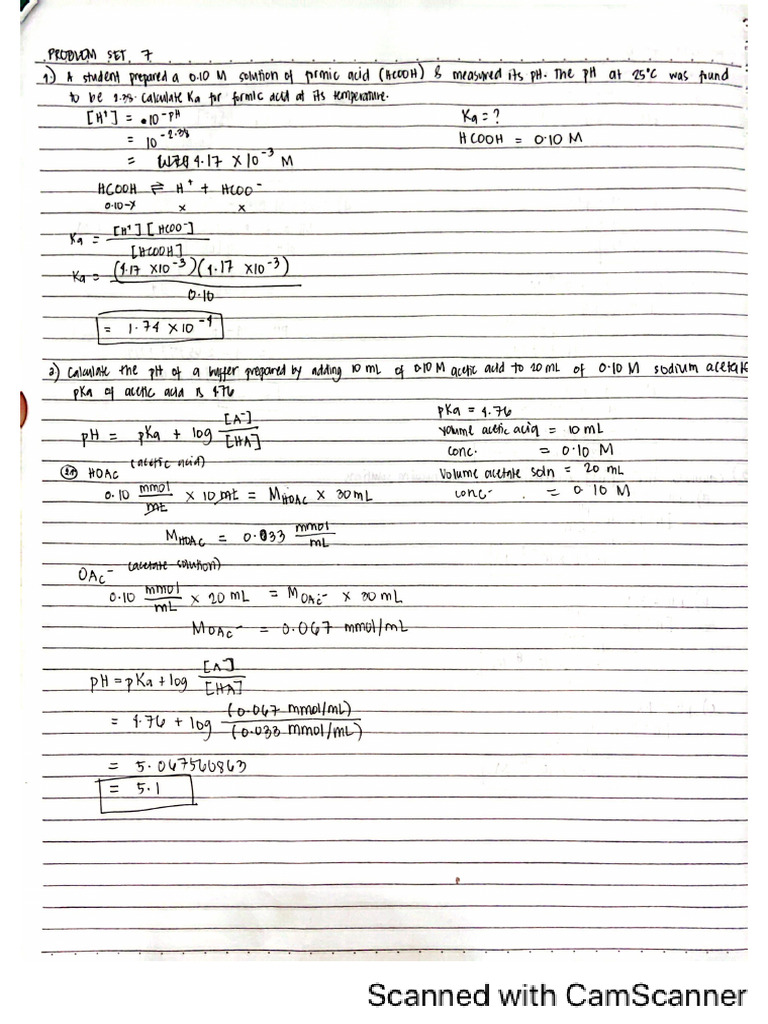 PROBLEM SET 7
1) A student prepared a 0.10 M solution of formic acid (HCOOH) & measured its pH. The pH at 25°C was found
to be 2.38. Calculate Ka for formic acid at its temperature.
[H⁺] = 10^-pH Ka = ?
= 10^-2.38 HCOOH = 0.10 M
= 4.17 x 10^-3 M
HCOOH ⇌ H⁺ + HCOO⁻
0.10-x x x
Ka = [H⁺][HCOO⁻] / [HCOOH]
Ka = (4.17 x10^-3)(4.17 x10^-3) / 0.10
= 1.74 x 10^-4
2) Calculate the pH of a buffer prepared by adding 10 mL of 0.10 M acetic acid to 20 mL of 0.10 M sodium acetate
pKa of acetic acid is 4.76
pH = pKa + log [A⁻] / [HA]
pKa = 4.76
volume acetic acid = 10 mL
conc. = 0.10 M
Volume acetate soln = 20 mL
conc. = 0.10 M
HOAc (acetic acid)
0.10 mmol/mL x 10 mL = M HOAc x 30 mL
M HOAc = 0.033 mmol/mL
OAc⁻ (acetate solution)
0.10 mmol/mL x 20 mL = M OAc⁻ x 30 mL
M OAc⁻ = 0.067 mmol/mL
pH = pKa + log [A⁻] / [HA]
= 4.76 + log (0.067 mmol/mL) / (0.033 mmol/mL)
= 5.067560863
= 5.1
Scanned with CamScanner